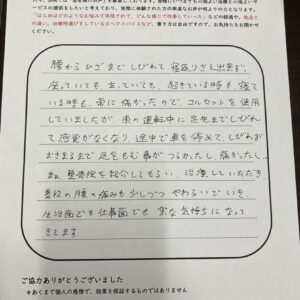 「はじめはどのようなお悩みで来院されて、どんな感じで改善していった」などの経緯や、
腰からひざまでしびれて寝返りさえ出来ず、
座っていても、立っていても、起きている時も、寝て
いる時も、常に痛かったので、コルセットを使用
していましたが、車の運転中に足先までしびれ
て感覚がなくなり、途中で車を停めて、しびれが
おさまるまで足をもむ事がつらかったし、痛かったし、
整体院を紹介してもらい、治療していただき
普段の腰の痛みも少しづつやわらいでいき、
生活面でも仕事面でも楽な気持ちになって
きてます。
ご協力ありがとうございました
★あくまで個人の感想で、効果を保証するものではありません